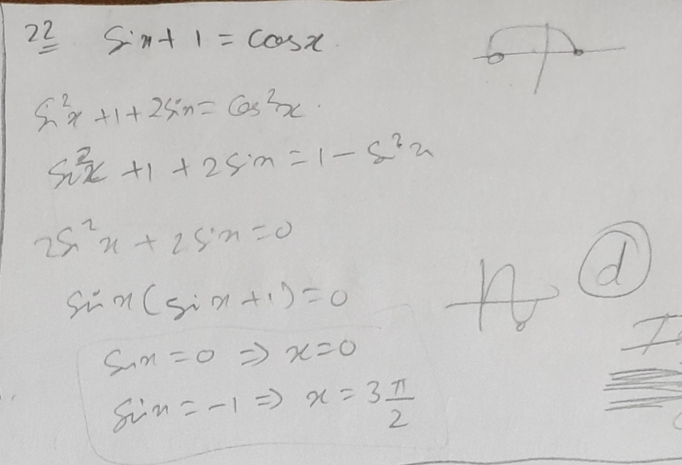 22 Sinx + 1 = Cosx.
Sin²x + 1 + 2Sinx = Cos²x.
Sin²x + 1 + 2Sinx = 1 - S²x
2Si²x + 2Sinx = 0
Sinx(Sinx + 1) = 0
d
Sinx = 0 ⇒ x = 0
Sinx = -1 ⇒ x = 3π/2